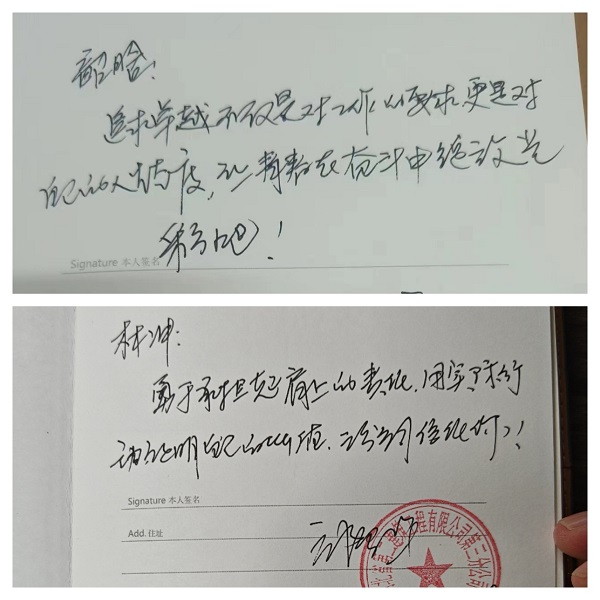 韶晗:
追求卓越不仅是对工作的要求更是对
自己的人生态度,让青春在奋斗中绽放光
彩吧!
Signature 本人签名
林坤:
勇于承担起肩上的责任,用实际行
动证明自己的价值,
信任你!
Signature 本人签名
Add. 住址
程有限公司第二分公司